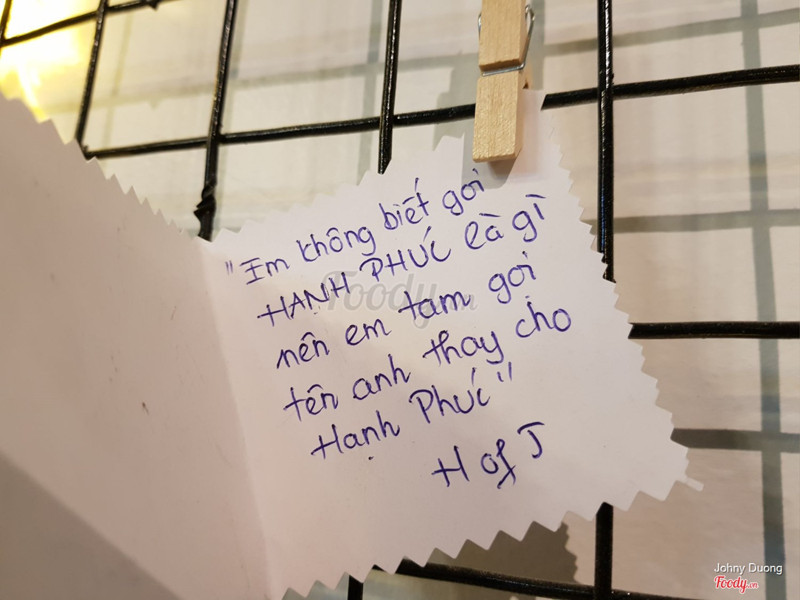 "Em không biết gọi
HẠNH PHÚC là gì
nên em tạm gọi
tên anh thay cho
Hạnh Phúc"
H of J
Foody.vn
Johny Duong
Foody.vn